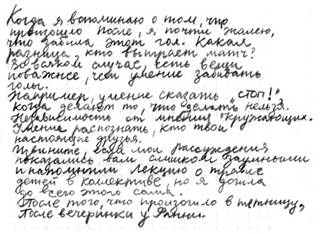 Когда я вспоминаю о том, что
произошло после, я почти жалею,
что забила этот гол. Какая
разница, кто выиграет матч?
Во всяком случае, есть вещи
поважнее, чем умение забивать
голы.
Например, умение сказать „стоп!",
когда делают то, что делать нельзя.
Независимость от мнения окружающих.
Умение распознать, кто твои
настоящие друзья.
Извините, если мои рассуждения
показались вам слишком заумными
и напомнили лекцию о травле
детей в коллективе, но я дошла
до всего этого сама.
После того, что произошло в пятницу,
После вечеринки у Фанни.